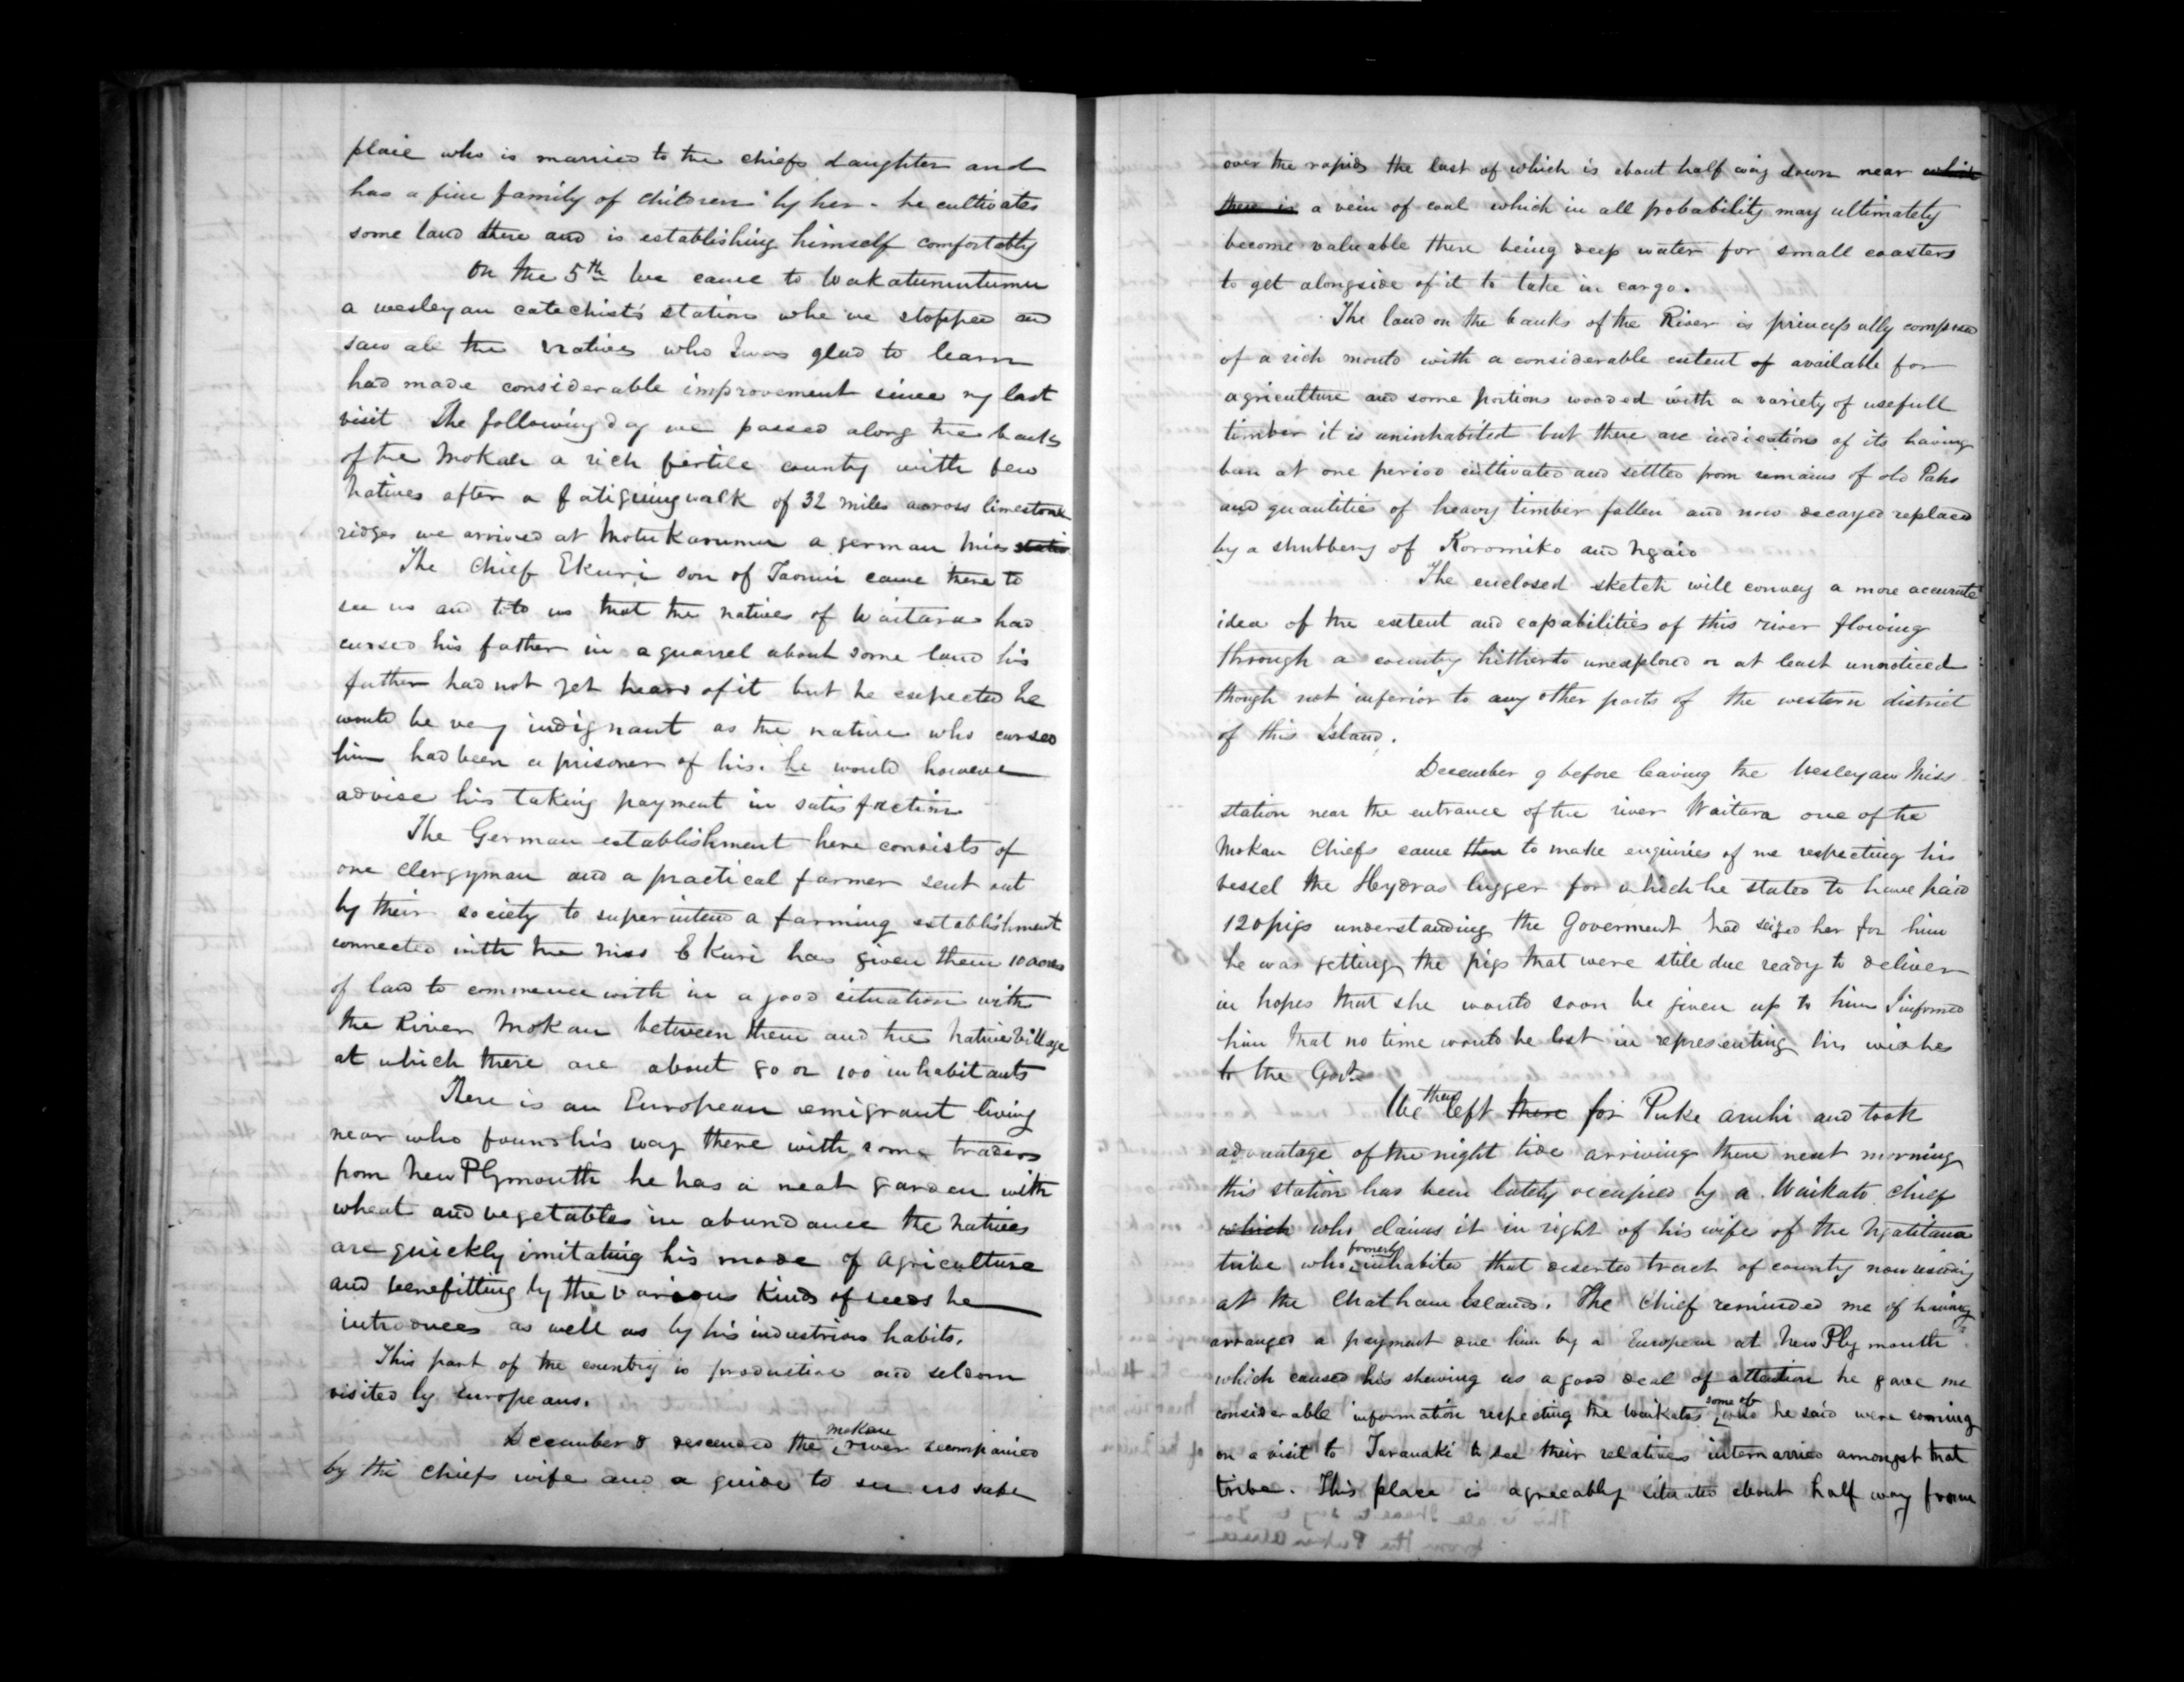 place who is married to the chiefs daughter and
has a fine family of children by her - he cultivates
some land there and is establishing himself comfortably
On the 5th we came to Wakatumutumu
a wesleyan catechist's station whe we stopped and
saw all the natives who I was glad to learn
had made considerable improvement since my last
visit. The following day we passed along the banks
of the Mokau a rich fertile county with few
natives after a fatiguing walk of 32 miles across limestone
ridges we arrived at Motukaramu a german Miss station
The Chief Ekuri son of Taonui came there to
see us and told us that the natives of Waitara had
cursed his father in a quarrel about some land his
father had not yet heard of it but he expected he
would be very indignant as the native who cursed
him had been a prisoner of his. he would however
advise his taking payment in satisfaction
The German establishment here consists of
one clergyman and a practical farmer sent out
by their society to superintend a farming establishment
connected with the miss E Kuri has given them 10 acres
of land to commence with in a good situation with
the River Mokau between them and the native village
at which there are about 80 or 100 inhabitants
There is an European emigrant living
near who found his way there with some traders
from New Plymouth he has a neat garden with
wheat and vegetables in abundance the natives
are quickly imitating his mode of agriculture
and benefitting by the various kinds of seeds he
introduces as well as by his industrious habits.
This part of the country is productive and seldom
visited by Europeans.
December 8 descended the mokau river accompanied
by the chiefs wife and a guide to see us safe
over the rapids the last of which is about half way down near which
there is a vein of coal which in all probability may ultimately
become valuable there being deep water for small coasters
to get alongside of it to take in cargo.
The land on the banks of the River is principally composed
of a rich mould with a considerable extent of available for
agriculture and some portions wooded with a variety of usefull
timber it is uninhabited but there are indications of its having
been at one period cultivated and settled from remains of old Pahs
and quantities of heavy timber fallen and now decayed replaced
by a shubbery of Koromiko and Ngaio
The enclosed sketch will convey a more accurate
idea of the extent and capabilities of this river flowing
through a country hitherto unexplored or at least unnoticed
though not inferior to any other parts of the western district
of this Island.
December 9 before leaving the Wesleyan Miss
station near the entrance of the river Waitara one of the
Mokau Chiefs came then to make enquiries of me respecting his
vessel the Hydras lugger for which he stated to have paid
120 pigs understanding the Goverment had seized her for him
he was getting the pigs that were still due ready to deliver
in hopes that she would soon be given up to him I informed
him that no time would be lost in representing his wishes
to the Govt.
We then left there for Puke aruhi and took
advantage of the night tide arriving there next morning
this station has been lately occupied by a Waikato chief
which who claims it in right of his wife of the Ngatitama
tribe who formerly inhabited that deserted tract of country now residing
at the Chatham Islands. The Chief reminded me of having
arranged a payment due him by a European at New Plymouth
which caused his shewing us a good deal of attention he gave me
considerable information respecting the Waikatos some of who he said were coming
on a visit to Taranaki to see their relatives intermarried amongst that
tribe. This place is agreeably situated about half way from